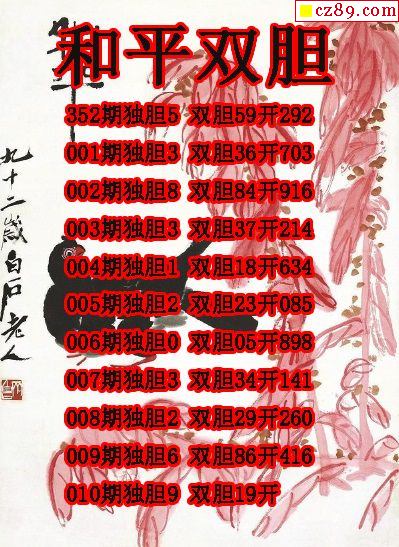 cz89.com
和平双胆
352期独胆5 双胆59开292
001期独胆3 双胆36开703
002期独胆8 双胆84开916
003期独胆3 双胆37开214
004期独胆1 双胆18开634
005期独胆2 双胆23开085
006期独胆0 双胆05开898
007期独胆3 双胆34开141
008期独胆2 双胆29开260
009期独胆6 双胆86开416
010期独胆9 双胆19开
九十二岁白石老人